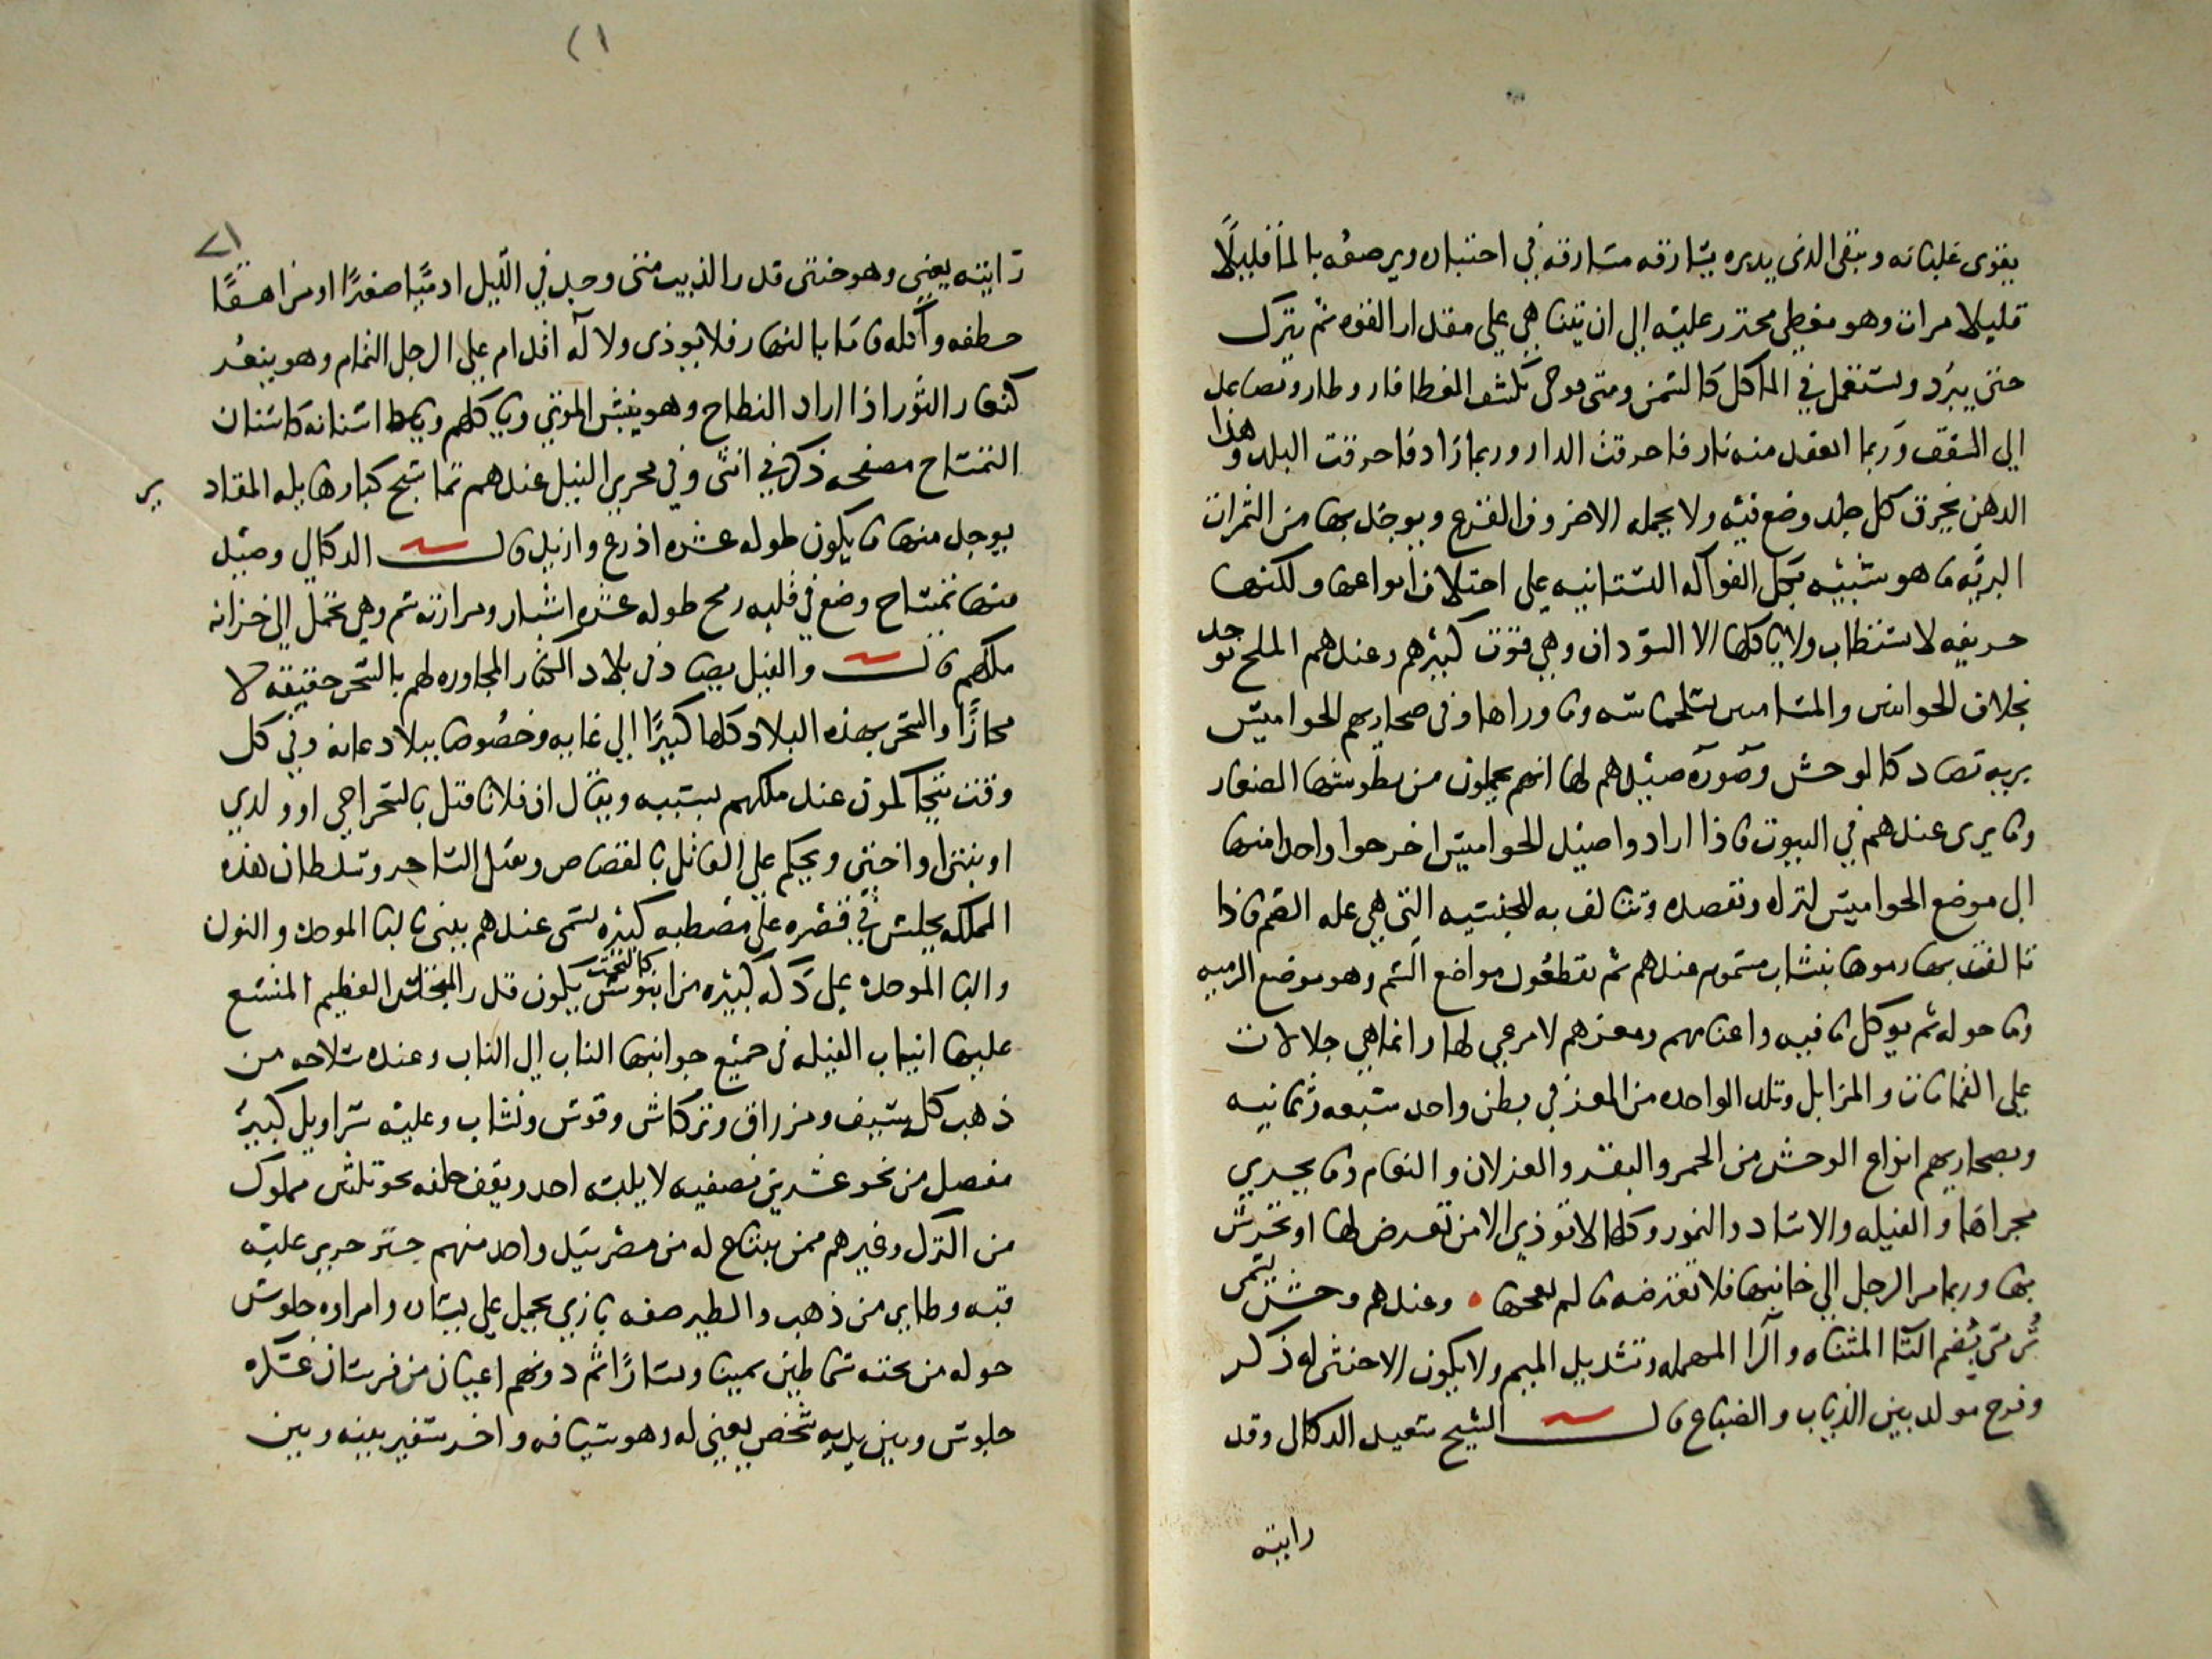 يقوى غليانه وينقى الذى يديره يشارقه مسارقه فى احتباه ويرصفه بالما قليلًا
قليلا مرات وهو مغطى محترز عليه الى ان يتناهى على مقدار القوه ثم يترك
حتى يبرد ويستعمل فى الماكل كالسمن ومتى كشف الغطا فار وطار وتصاعد
الى السقف وربما انعقد منه نار فاحرقت الدار وربما زاد فاحرقت البلد وهذا
الدهن يخرق كل جلد وضع فيه ولا يحمله الا ضروف القرع ويوجد بها من الثمرات
البريه ما هو شبيه بكل الفواكه البستانيه على اختلاف انواعها ولكنها
حريفه لا تستطاب ولا ياكلها الا السودان وهى قوت كثيرهم وعندهم الملح يوجد
بخلاف الجوانى والمسامس بسلجماسه وما وراها وفى صحاريهم الجواميس
بريه تصاد كالوحش وصورة صيدهم لها انهم يحملون من بطوسها الصغار
وما يربى عندهم فى البيوت فاذا ارادوا صيد الجواميس اخرجوا واحدا منها
الى موضع الجواميس لتراه وتقصده وتتالف به للجنسيه التى هى عله الضم فاذا
تالفت بها رموها بنشاب مسموم عندهم ثم يقطعون مواضع السم وهو موضع الرميه
وما حوله ثم يوكل ما فيه واغنامهم ومعزهم لا مرعى لها وانما هى جلالات
على القمامات والمزابل وتلد الواحده من المعز فى بطن واحد سبعه وثمانيه
وبصحاريهم انواع الوحش من الحمر والبقر والغزلان والنعام وما يجرى
مجراها والفيله والاساد والنمور وكلها لا توذى الا من تعرض لها او تحرش
بها وربما مر الرجل الى جانبها فلا تعترضه ما لم يهجها ۰ وعندهم وحش يسمى
تُرمّى بضم التا المثناه والرا المهمله وتشديد الميم ولا يكون الا خنثى له ذكر
وفرج مولد بين الذياب والضباع قال الشيخ سعيد الدكالى وقد
رايته
٢١
٢١
رايته يعنى وهو خنثى قدر الذيب متى وجد فى الليل ادميًا صغيرًا او مراهقًا
خطفه واكله فاما بالنهار فلا يوذى ولا له اقدام على الرجل التمام وهو ينعر
كنعار الثور اذا اراد النطاح وهو ينبش الموتى وياكلهم ونمط اسنانه كاسنان
التمساح مصفحه ذكر فى انثى وفى بحرى النيل عندهم تماسيح كبار هايله المقادير
يوجد منها ما يكون طوله عشره اذرع وازيد قال الدكالى وصيد
منها تمساح وضع فى قلبه رمح طوله عشره اشبار ومرارته سم وهى تحمل الى خزانه
ملكهم قال والفيل يصاد فى بلاد الكفار المجاوره لهم بالسحر حقيقه لا
مجازًا والسحر بهذه البلاد كلها كبيرًا الى غايه وخصُوصا ببلاد غانه وفى كل
وقت يتحاكمون عند ملكهم بسببه ويقال ان فلانا قتل بالسحر اخى او ولدى
او بنتى او اختى ويحكم على القاتل بالقصاص وبقتل الساحر وسلطان هذه
المملكه يجلس فى قصره على مصطبه كبيره تسمى عندهم ببنى بالبا الموحده والنون
والبا الموحده على دكه كبيره من ابنوس كالتخت يكون قدر المجلس العظيم المتسع
عليها انياب الفيله فى جميع جوانبها الناب الى الناب وعنده سلاحه من
ذهب كله سيف ومزراق وتركاش وقوس ونشاب وعليه سراويل كبير
مفصل من نحو عشرين نصفيه لا يلبسه احد ويقف خلفه نحو ثلثين مملوك
من الترك وغيرهم ممن يبتاع له من مصر بيد واحد منهم جتر حرير عليه
قبه وطاير من ذهب والطير صفه بازى يحمل على يساره وامراوه جلوس
حوله من تحته سماطين يمينا ويسارًا ثم دونهم اعيان من فرسان عسكره
جلوس وبين يديه شخص يغنى له وهو سيافه واخر سفير بينه وبين